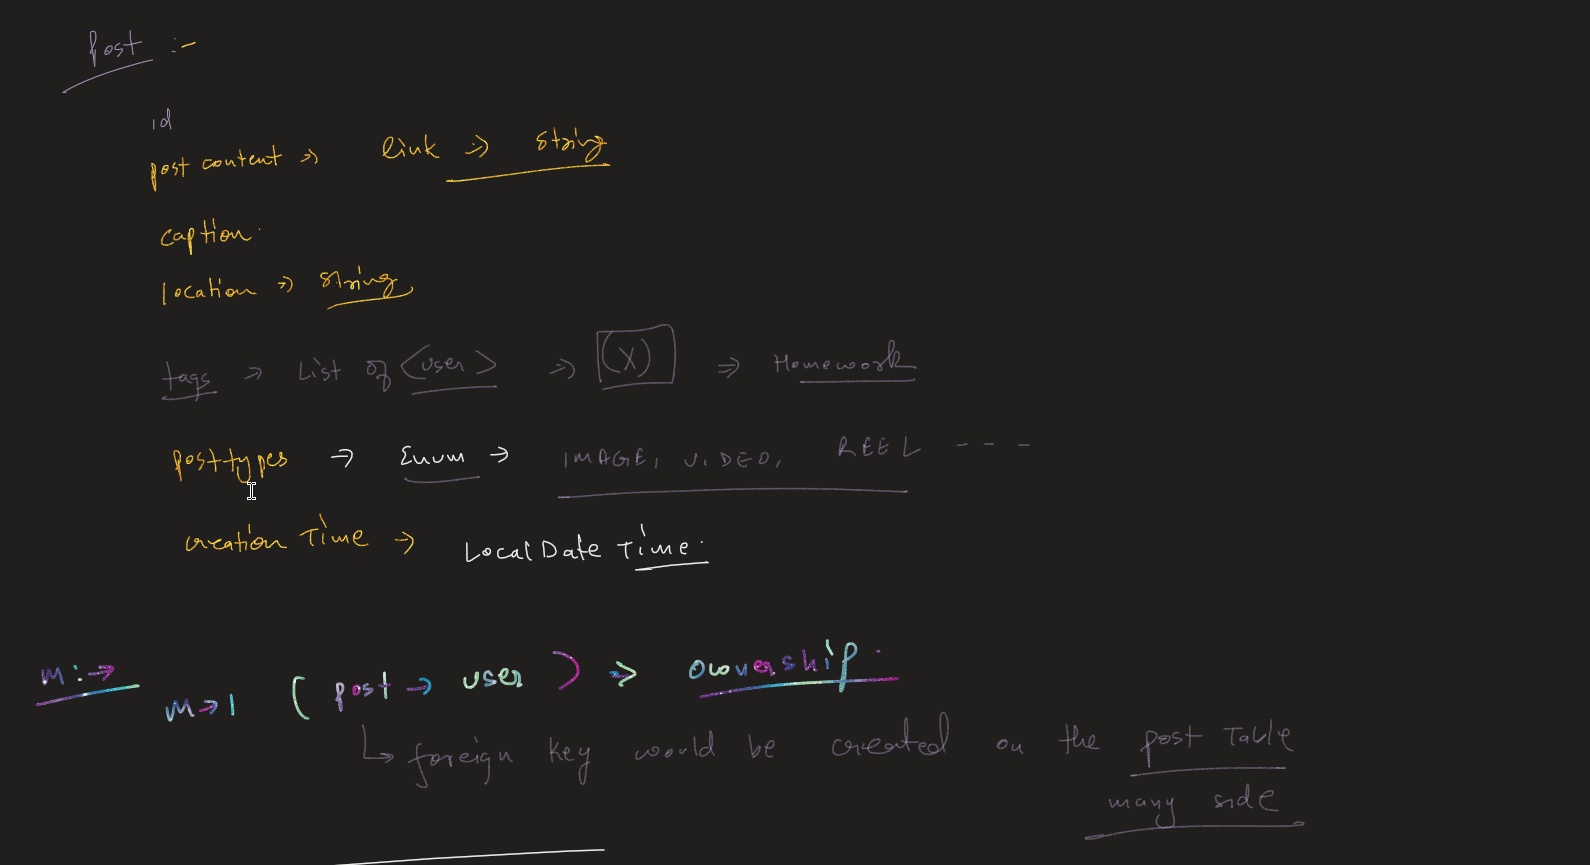 Post :-
id
post content => link => string
caption.
location => string
tags => List of <user> => (X) => Homework
posttypes -> Enum -> IMAGE, VIDEO, REEL - - -
creation Time -> LocalDate Time.
M :->
M -> 1 ( post -> user ) => ownership.
↳ foreign key would be created on the post Table
many side